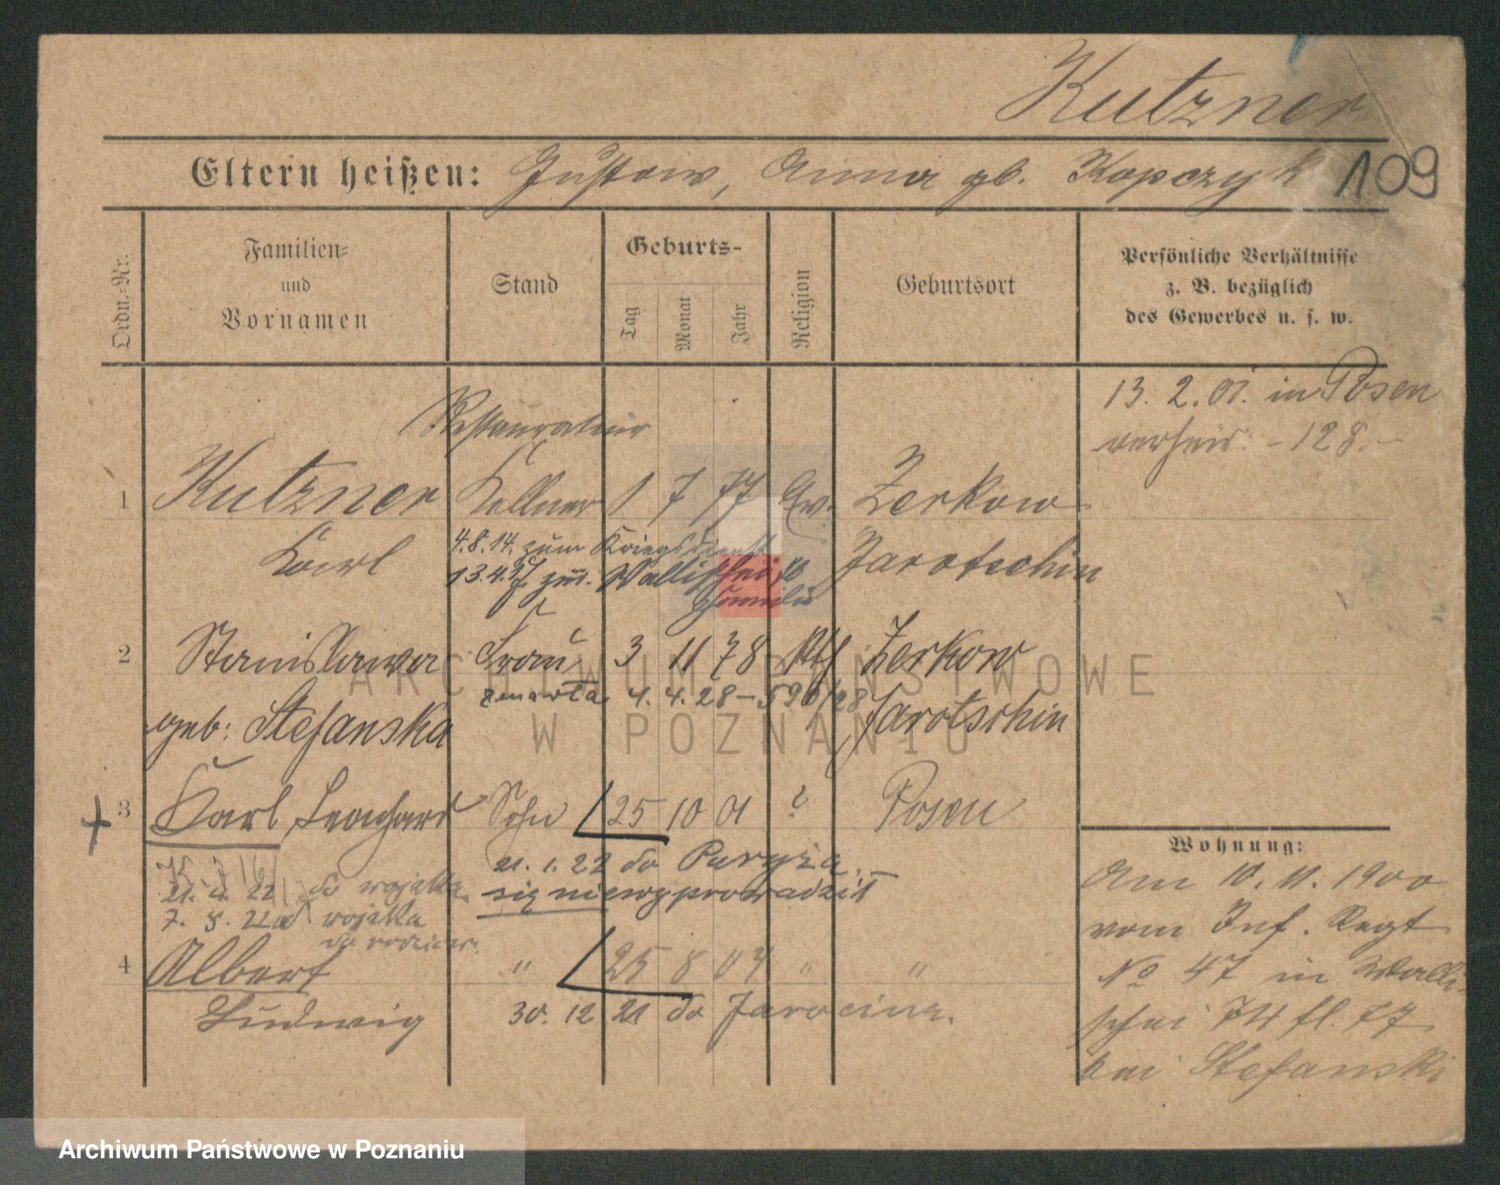 Kutzner
Eltern heißen: Gustaw, Anna gb. Kopczyk 109
Ordn.-Nr.
Familien-
und
Vornamen
Stand
Geburts-
Tag
Monat
Jahr
Religion
Geburtsort
Persönliche Verhältnisse
z. B. bezüglich
des Gewerbes u. s. w.
13. 2. 01. in Posen
verheir. - 128. -
Restaurateur
1 Kutzner Kellner 1 7 77 Ew. Zerkow
Karl Jarotschin
4.8.14. zum Kriegsdienst
13.4.17. zur. Wallischei
Familie
2 Stanislawa Frau 3 11 78 Kth Zerkow
zmarła 4. 4. 28 - 590/28
geb: Stefanska Jarotschin
3 Karl Leonhard Sohn 25 10 01 ? Posen
21. 1. 22 do Paryża
21. 4. 22 do wojska
się nie wyprowadził
7. 8. 22 od wojska
do rodziców
4 Albert " 25 8 04 " "
Ludwig
30. 12 21 do Jarocina.
Wohnung:
Am 10. 11. 1900
vom Inf. Regt
No 47 in Walli-
schei 74 fl. 77
bei Stefanski
ARCHIWUM PAŃSTWOWE
W POZNANIU
Archiwum Państwowe w Poznaniu